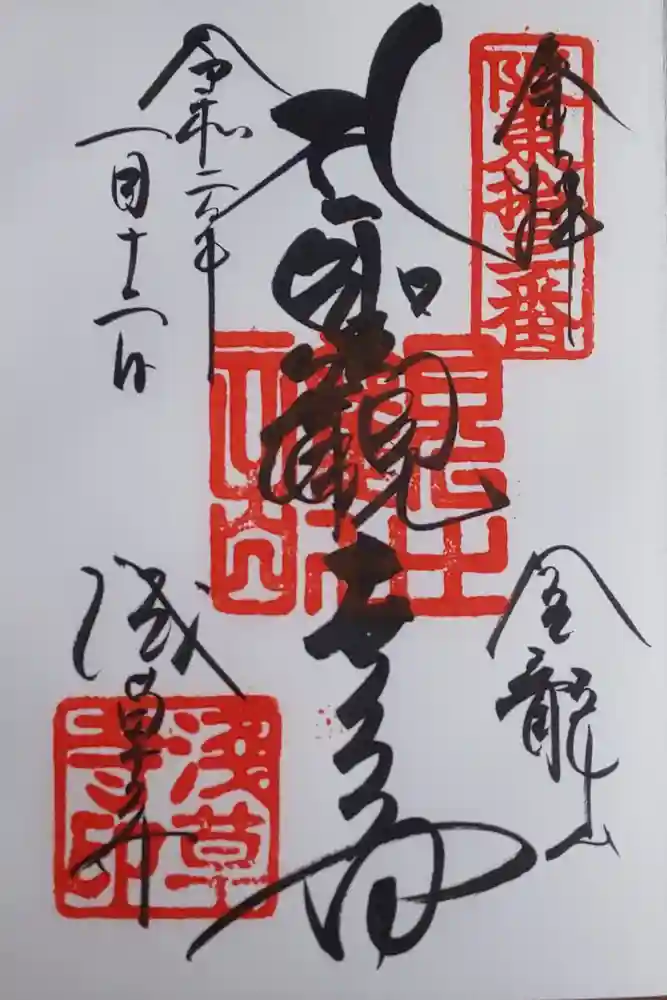 奉拝
阪東拾三番
金龍山
聖観世音
令和二年
一月十二日
浅草寺
浅草寺印